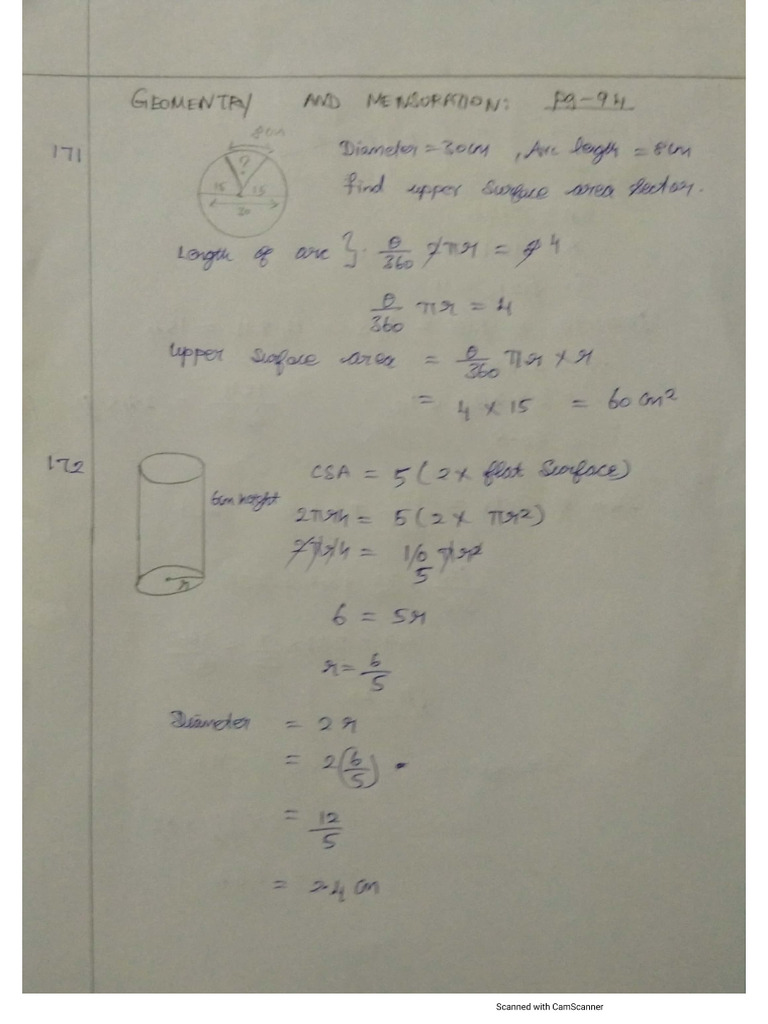 GEOMENTRY AND MENSURATION: Pg-94
171
8cm
?
15 15
30
Diameter = 30cm , Arc length = 8cm
find upper surface area sector.
Length of arc }. θ/360 2πr = 8 4
θ/360 πr = 4
Upper surface area = θ/360 πr × r
= 4 × 15 = 60 cm²
172
6cm height
r
CSA = 5 (2 × flat surface)
2πrh = 5 (2 × πr²)
2πrh = 10 πr²
5
6 = 5r
r = 6/5
Diameter = 2r
= 2(6/5)
= 12/5
= 2.4 cm
Scanned with CamScanner